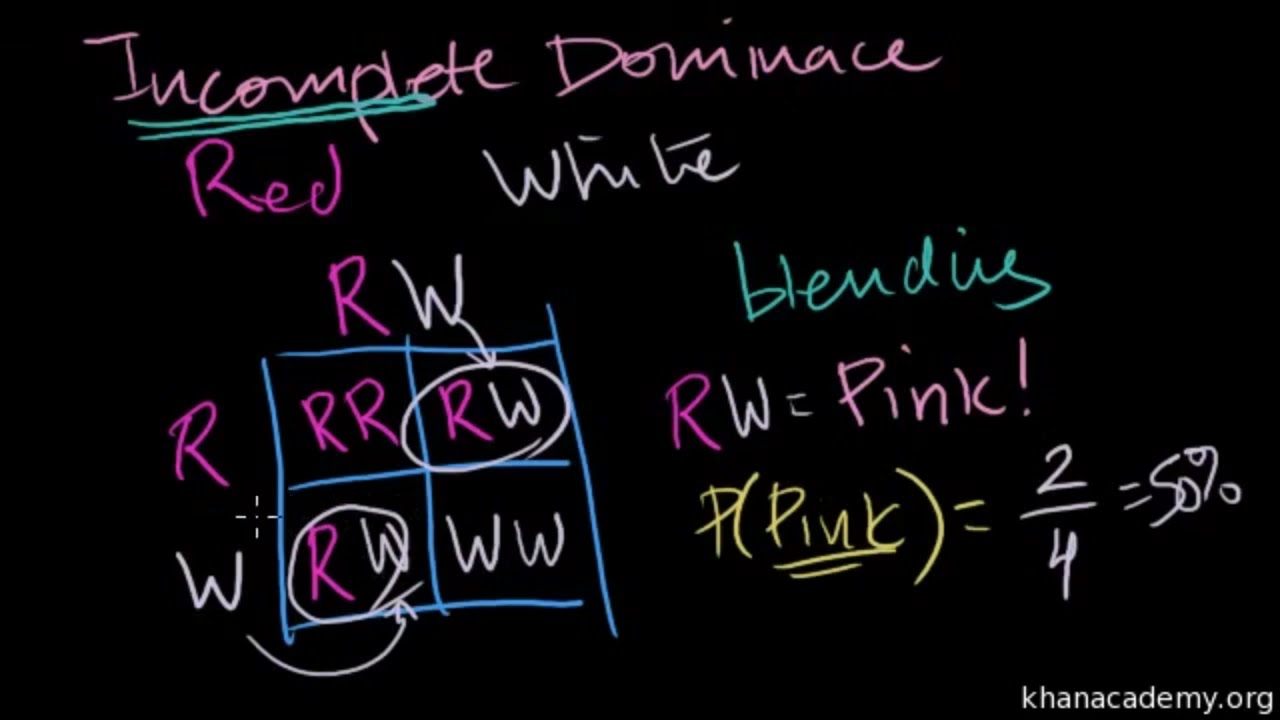 Incomplete Dominace
Red White
blending
R W
R RR RW
RW = Pink!
P(Pink) = 2/4 = 50%
W RW WW
khanacademy.org